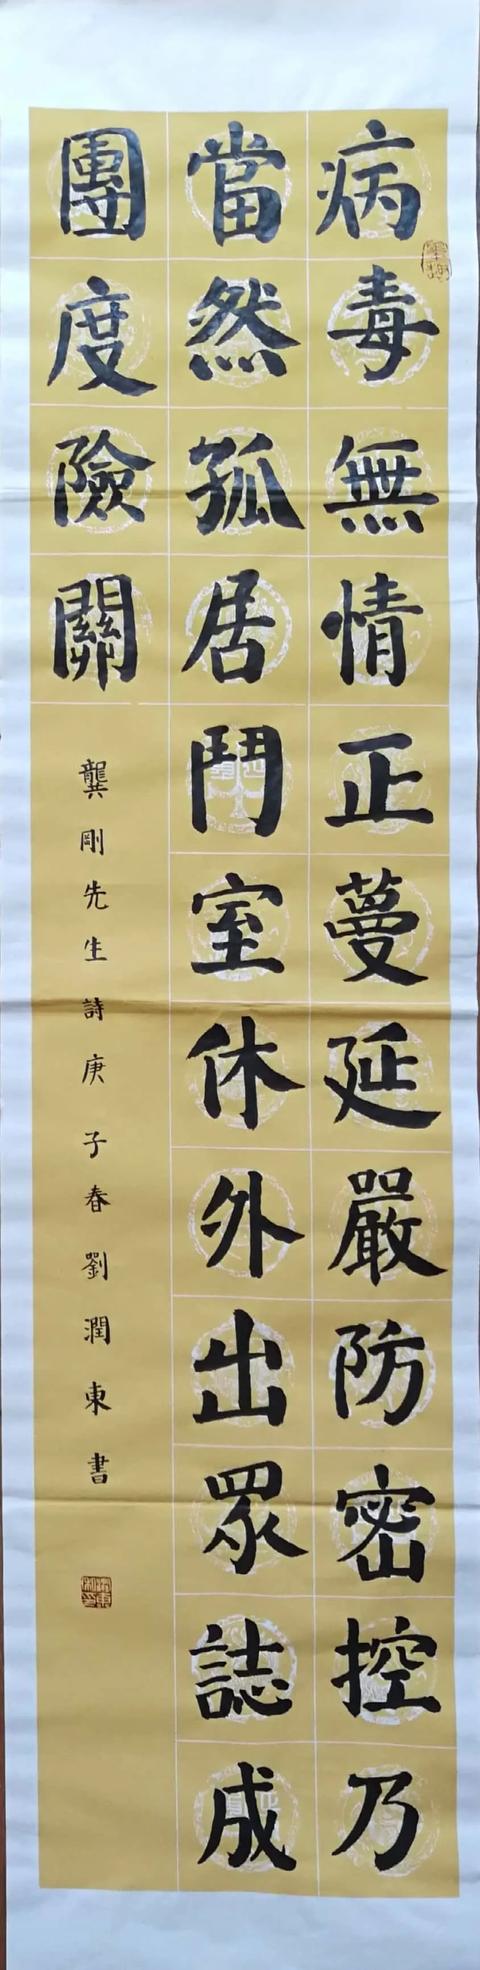 病毒無情正蔓延嚴防密控乃
當然孤居鬥室休外出眾誌成
團度險關
龔剛先生詩庚子春劉潤東書